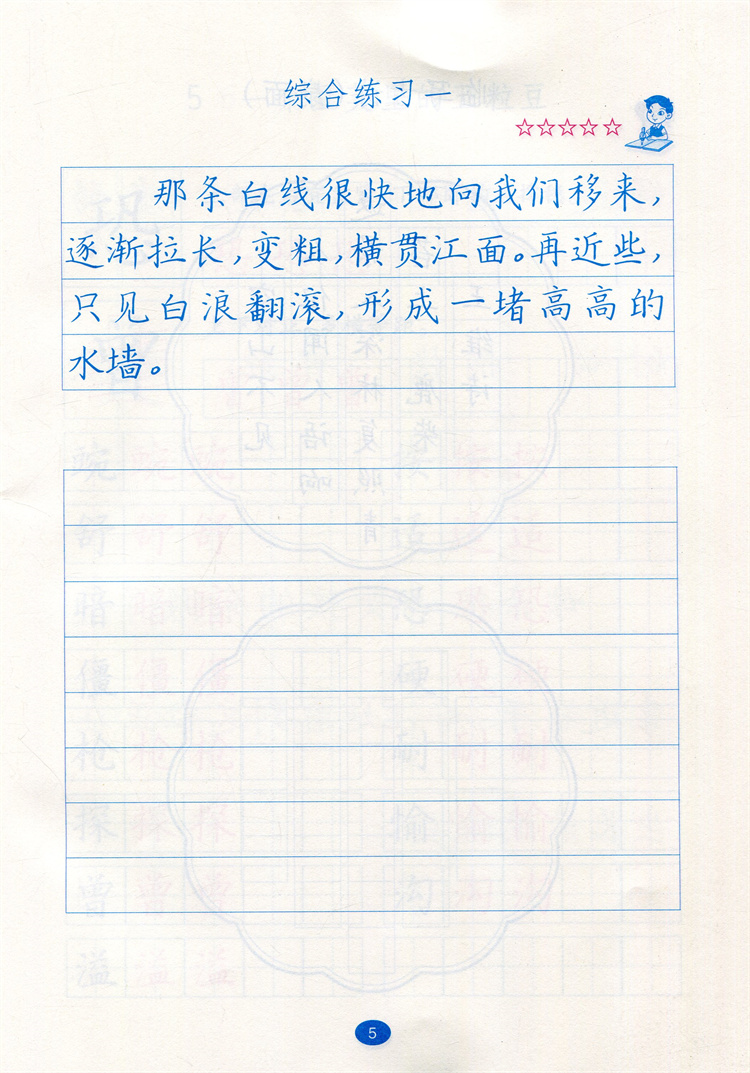 综合练习一
☆☆☆☆☆
那条白线很快地向我们移来，
逐渐拉长，变粗，横贯江面。再近些，
只见白浪翻滚，形成一堵高高的
水墙。
5